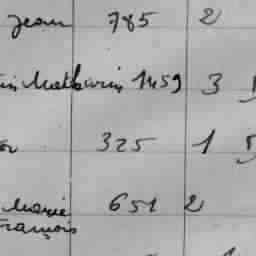 Jean 785 2
Mathurin 1459 3
325 1 5
Marie 651 2
François